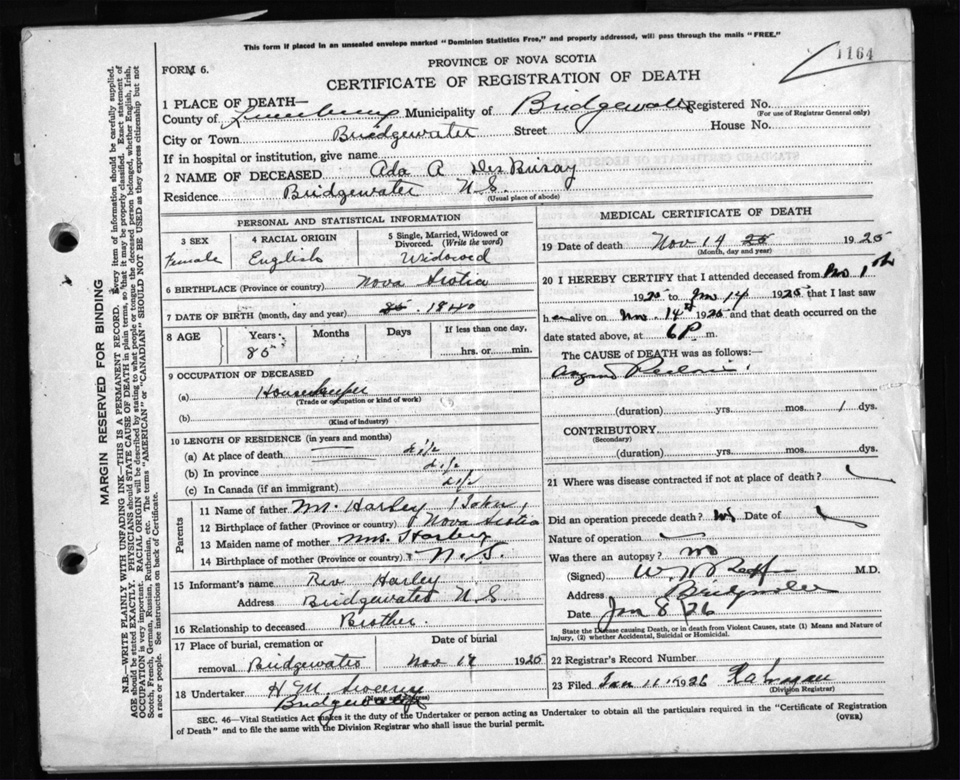 This form if placed in an unsealed envelope marked "Dominion Statistics Free," and properly addressed, will pass through the mails "FREE."
1164
PROVINCE OF NOVA SCOTIA
FORM 6.
CERTIFICATE OF REGISTRATION OF DEATH
1 PLACE OF DEATH—
County of Lunenburg Municipality of Bridgewater Registered No.
(For use of Registrar General only)
City or Town Bridgewater Street House No.
If in hospital or institution, give name
2 NAME OF DECEASED Ada A Des Brisay
Residence Bridgewater N.S. (Usual place of abode)
PERSONAL AND STATISTICAL INFORMATION
3 SEX 4 RACIAL ORIGIN 5 Single, Married, Widowed or Divorced. (Write the word)
Female English Widowed
6 BIRTHPLACE (Province or country) Nova Scotia
7 DATE OF BIRTH (month, day and year) 1840
8 AGE Years Months Days If less than one day,
85 hrs. or min.
9 OCCUPATION OF DECEASED
(a) Housekeeper
(Trade or occupation or kind of work)
(b)
(Kind of industry)
10 LENGTH OF RESIDENCE (in years and months)
(a) At place of death
(b) In province
(c) In Canada (if an immigrant)
Parents
11 Name of father M. Harley
12 Birthplace of father (Province or country) Nova Scotia
13 Maiden name of mother Mrs. Harley
14 Birthplace of mother (Province or country) N.S.
15 Informant's name Rev Harley
Address Bridgewater N S
16 Relationship to deceased Brother.
17 Place of burial, cremation or Date of burial
removal Bridgewater Nov 17 1925
18 Undertaker H M
Bridgewater
MEDICAL CERTIFICATE OF DEATH
19 Date of death Nov 14 1925
(Month, day and year)
20 I HEREBY CERTIFY that I attended deceased from
1925 to 14 1925 that I last saw
her alive on Nov. 14th 1925 and that death occurred on the
date stated above, at 6 P m.
The CAUSE OF DEATH was as follows:
(duration) yrs. mos. 1 dys.
CONTRIBUTORY
(Secondary)
(duration) yrs. mos. dys.
21 Where was disease contracted if not at place of death?
Did an operation precede death? Date of
Nature of operation
Was there an autopsy? no
(Signed) M.D.
Address Bridgewater
Date Jan 8 /26
State the Disease causing Death, or in death from Violent Causes, state (1) Means and Nature of
Injury, (2) whether Accidental, Suicidal or Homicidal.
22 Registrar's Record Number
23 Filed Jan 11 1926
(Division Registrar)
SEC. 46—Vital Statistics Act makes it the duty of the Undertaker or person acting as Undertaker to obtain all the particulars required in the "Certificate of Registration
of Death" and to file the same with the Division Registrar who shall issue the burial permit. (OVER)
MARGIN RESERVED FOR BINDING
N.B.—WRITE PLAINLY WITH UNFADING INK—THIS IS A PERMANENT RECORD. Every item of information should be carefully supplied.
AGE should be stated EXACTLY. PHYSICIANS should STATE CAUSE OF DEATH in plain terms, so that it may be properly classified. Exact statement of
OCCUPATION is very important. RACIAL ORIGIN will be described by stating to what people or tongue the deceased person belonged, whether English, Irish,
Scotch, French, German, Russian, Ruthenian, etc. The terms "AMERICAN" or "CANADIAN" SHOULD NOT BE USED as they express citizenship but not
a race or people. See instructions on back of Certificate.